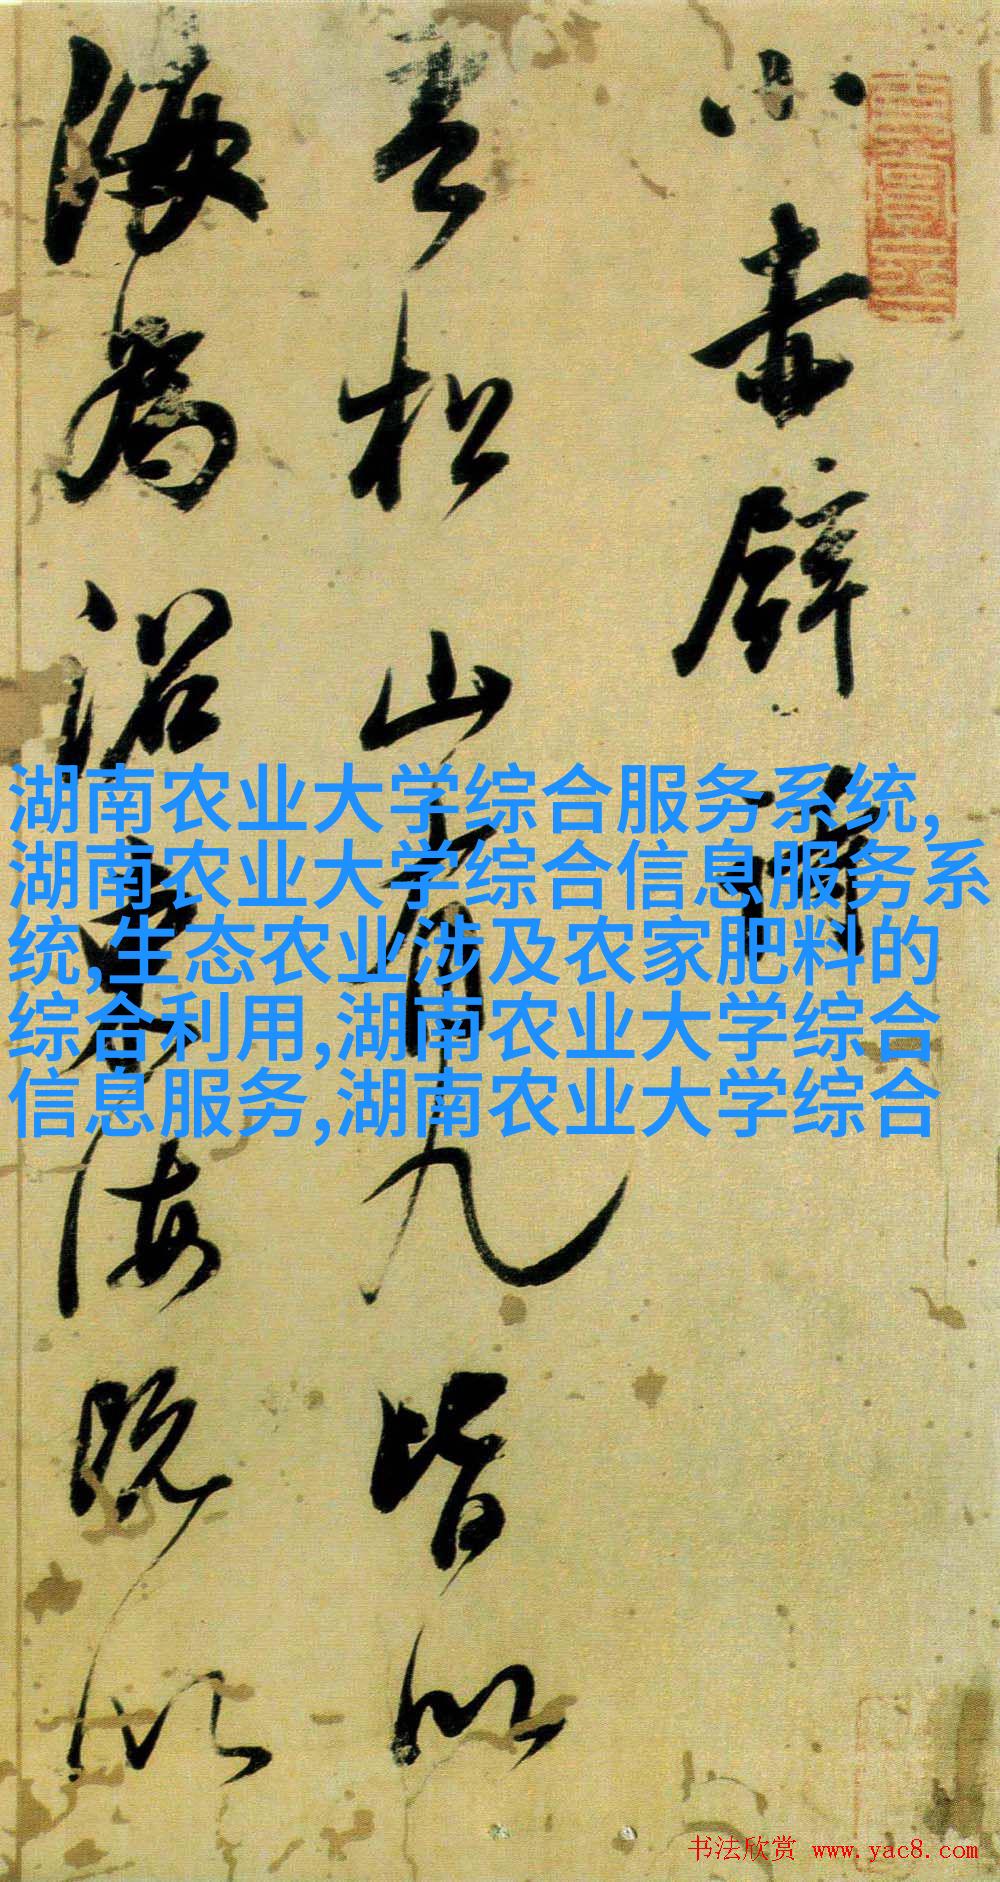 小赤壁詩
看松山
有九皆似
海為沼
海既以
湖南农业大学综合服务系统,
湖南农业大学综合信息服务系
统,生态农业涉及农家肥料的
综合利用,湖南农业大学综合
信息服务,湖南农业大学综合
书法欣赏 www.yac8.com